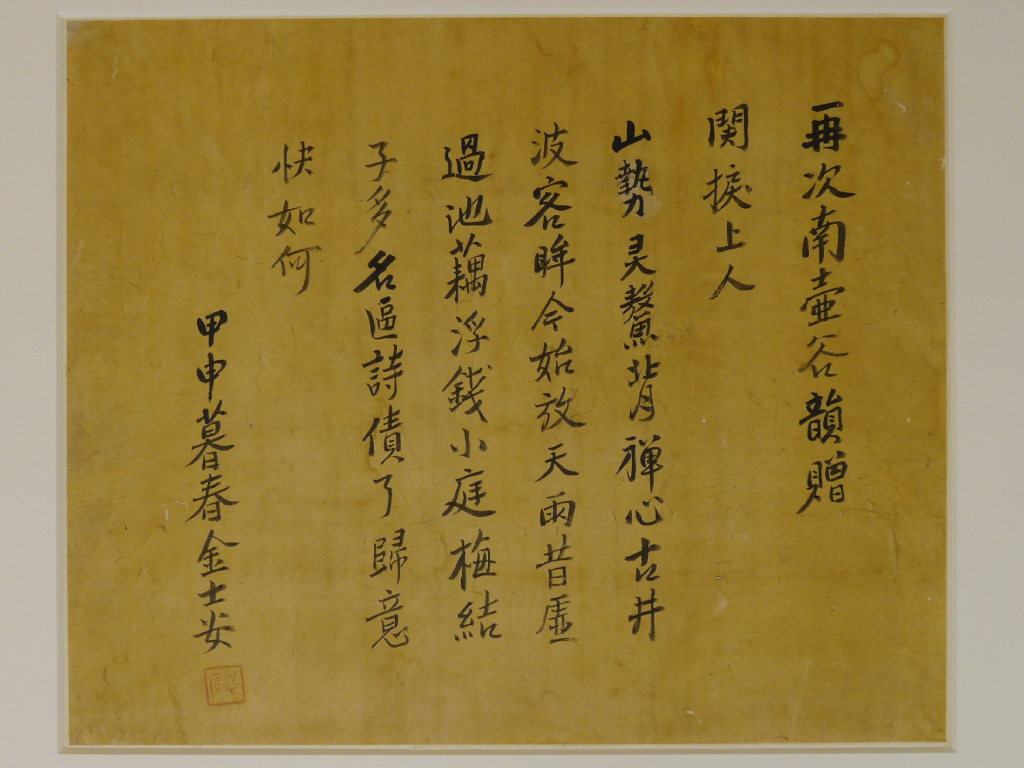 再次南壺谷韻贈
関捩上人
山勢灵鰲背禅心古井
波客眸今始放天雨昔虛
過池藕浮錢小庭梅結
子多名區詩債了歸意
快如何
甲申暮春金士安